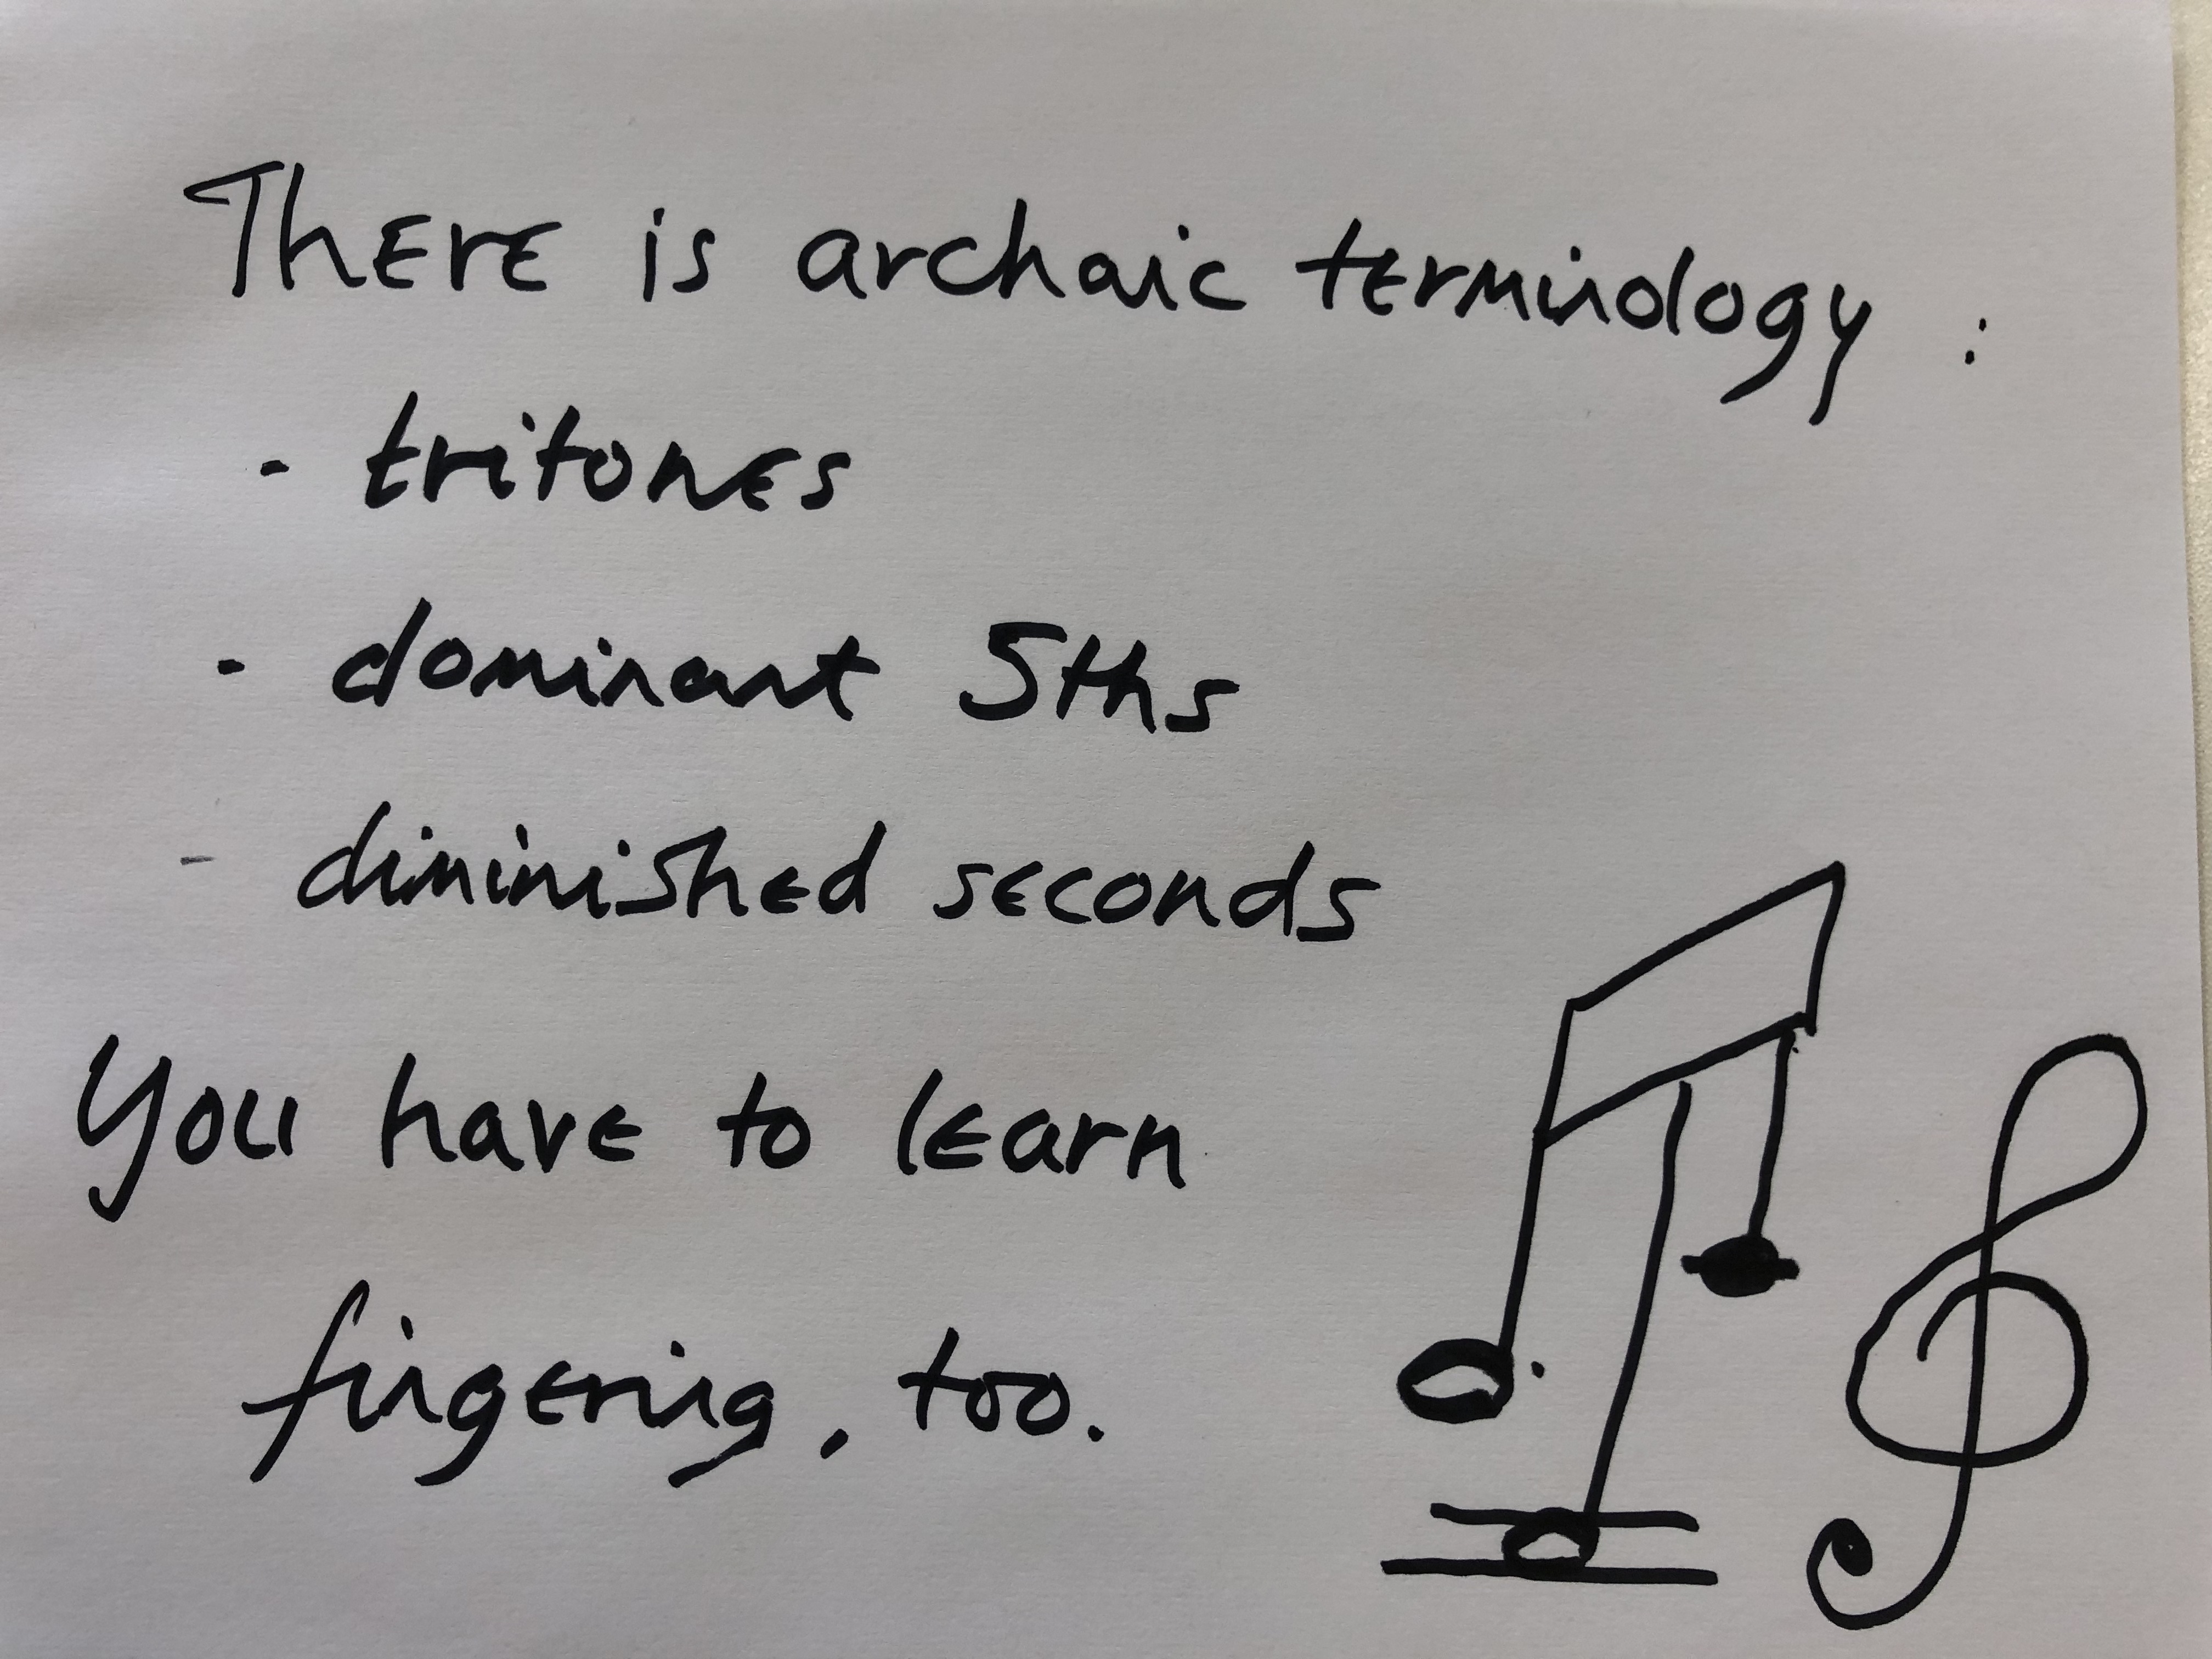 There is archaic terminology :
- tritones
- dominant 5ths
- diminished seconds
You have to learn
fingering, too.